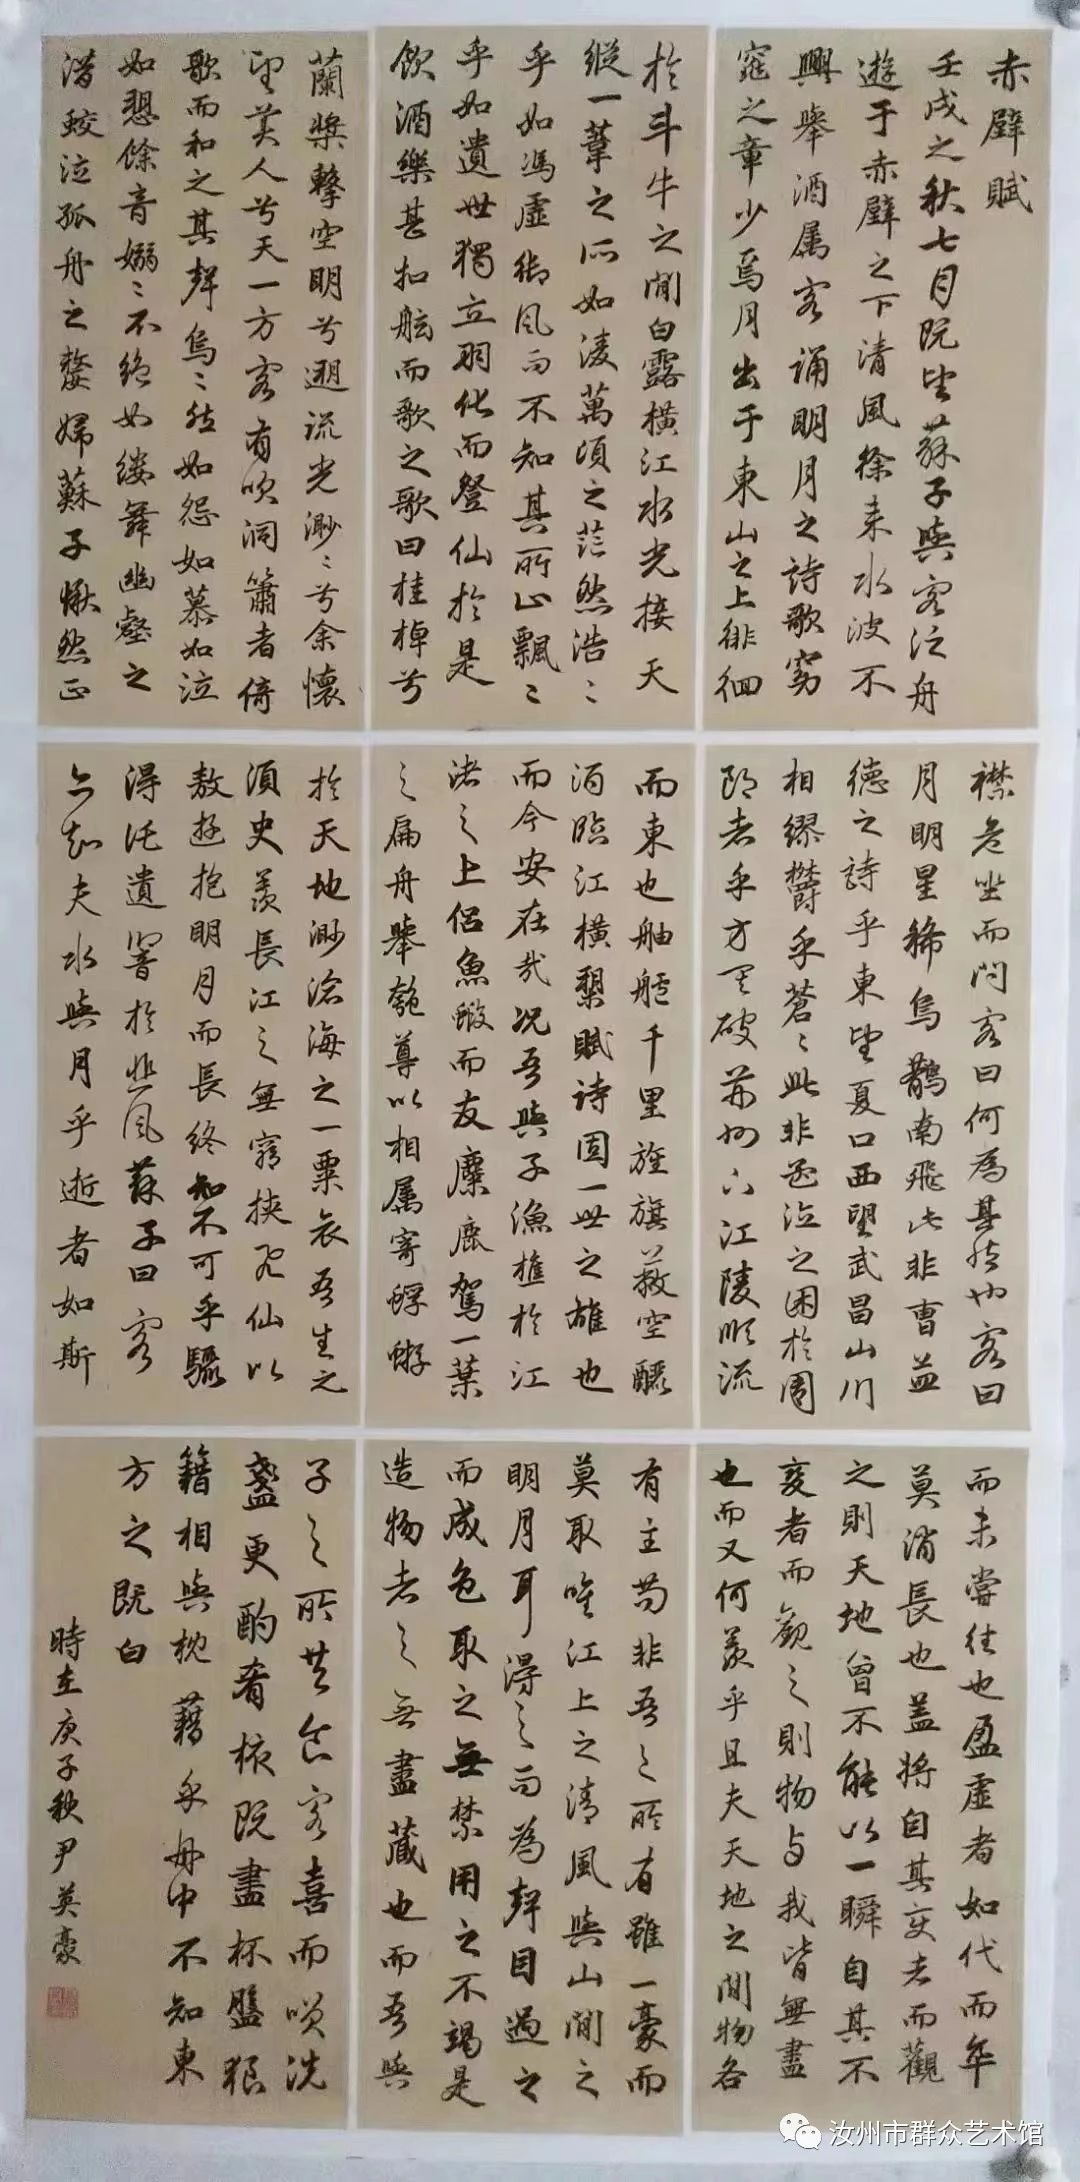 赤壁賦
壬戌之秋七月既望蘇子與客泛舟
遊于赤壁之下清風徐来水波不
興舉酒属客誦明月之詩歌窈
窕之章少焉月出于東山之上徘徊
於斗牛之間白露橫江水光接天
縱一葦之所如淩萬頃之茫然浩〻
乎如馮虛御風而不知其所止飄〻
乎如遺世獨立羽化而登仙於是
飲酒樂甚扣舷而歌之歌曰桂棹兮
蘭槳擊空明兮遡流光渺〻兮余懷
望美人兮天一方客有吹洞簫者倚
歌而和之其聲烏〻然如怨如慕如泣
如愬餘音嫋〻不絕如縷舞幽壑之
潛蛟泣孤舟之嫠婦蘇子愀然正
襟危坐而問客曰何為其然也客曰
月明星稀烏鵲南飛此非曹孟
德之詩乎東望夏口西望武昌山川
相繆鬱乎蒼〻此非孟德之困於周
郎者乎方其破荊州下江陵順流
而東也舳艫千里旌旗蔽空釃
酒臨江橫槊賦詩固一世之雄也
而今安在哉況吾與子漁樵於江
渚之上侶魚蝦而友麋鹿駕一葉
之扁舟舉匏尊以相属寄蜉蝣
於天地渺滄海之一粟哀吾生之
須臾羨長江之無窮挾飛仙以
遨遊抱明月而長終知不可乎驟
得託遺響於悲風蘇子曰客
亦知夫水與月乎逝者如斯
而未嘗往也盈虛者如代而卒
莫消長也蓋將自其变者而觀
之則天地曾不能以一瞬自其不
变者而觀之則物与我皆無盡
也而又何羨乎且夫天地之間物各
有主苟非吾之所有雖一豪而
莫取唯江上之清風與山間之
明月耳得之而為聲目遇之
而成色取之無禁用之不竭是
造物者之無盡藏也而吾與
子之所共食客喜而笑洗
盞更酌肴核既盡杯盤狼
籍相與枕藉乎舟中不知東
方之既白
時在庚子秋尹英豪
汝州市群众艺术馆